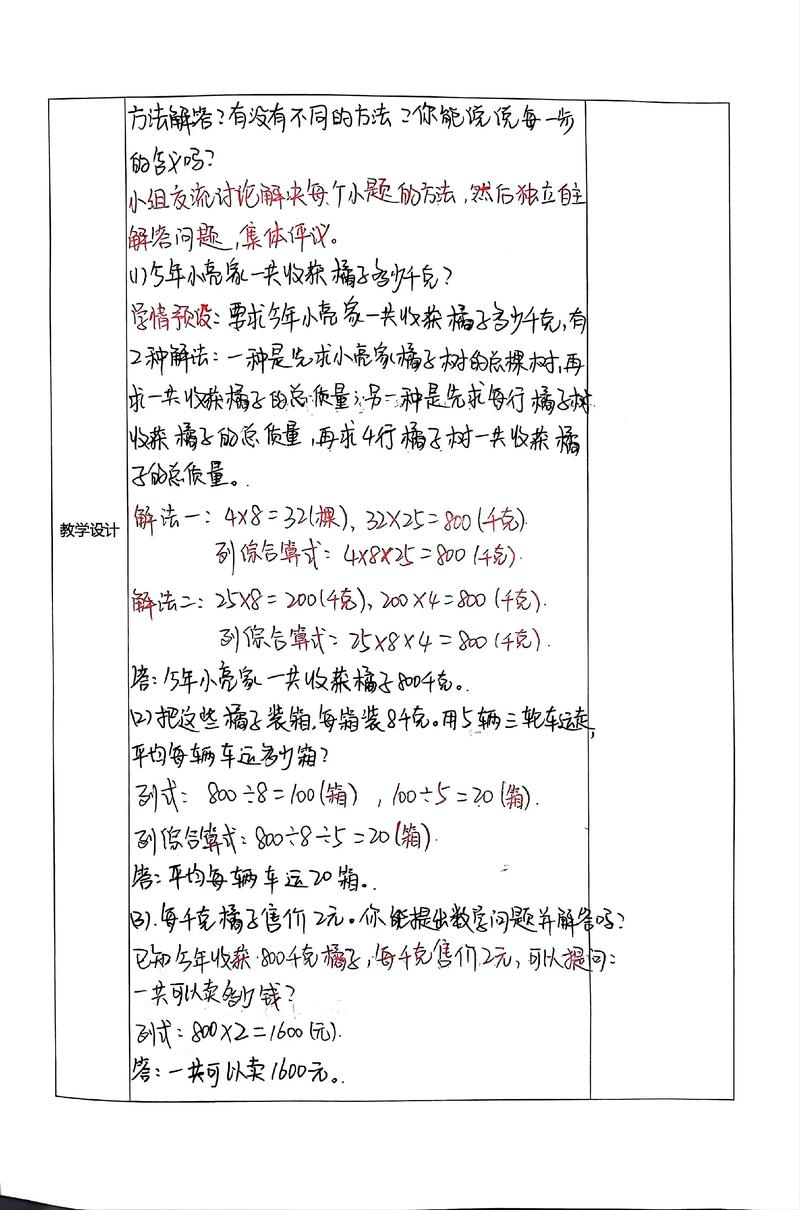 方法解答？有没有不同的方法？你能说说每一步
的含义吗？
小组交流讨论解决每个小题的方法，然后独立自主
解答问题，集体评议。
(1)今年小亮家一共收获橘子多少千克？
学情预设：要求今年小亮家一共收获橘子多少千克，有
2种解法：一种是先求小亮家橘子树的总棵树，再
求一共收获橘子的总质量；另一种是先求每行橘子树
收获橘子的总质量，再求4行橘子树一共收获橘
子的总质量。
教学设计
解法一：4×8=32(棵)，32×25=800(千克).
列综合算式：4×8×25=800(千克).
解法二：25×8=200(千克)，200×4=800(千克).
列综合算式：25×8×4=800(千克).
答：今年小亮家一共收获橘子800千克。
(2)把这些橘子装箱，每箱装8千克。用5辆三轮车运走，
平均每辆车运多少箱？
列式：800÷8=100(箱)，100÷5=20(箱).
列综合算式：800÷8÷5=20(箱).
答：平均每辆车运20箱。
(3).每千克橘子售价2元。你能提出数学问题并解答吗？
已知今年收获800千克橘子，每千克售价2元，可以提问：
一共可以卖多少钱？
列式：800×2=1600(元).
答：一共可以卖1600元。